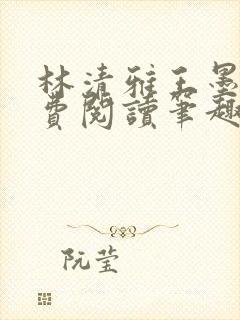 林清雅王墨
費閱讀筆趣
阮莹